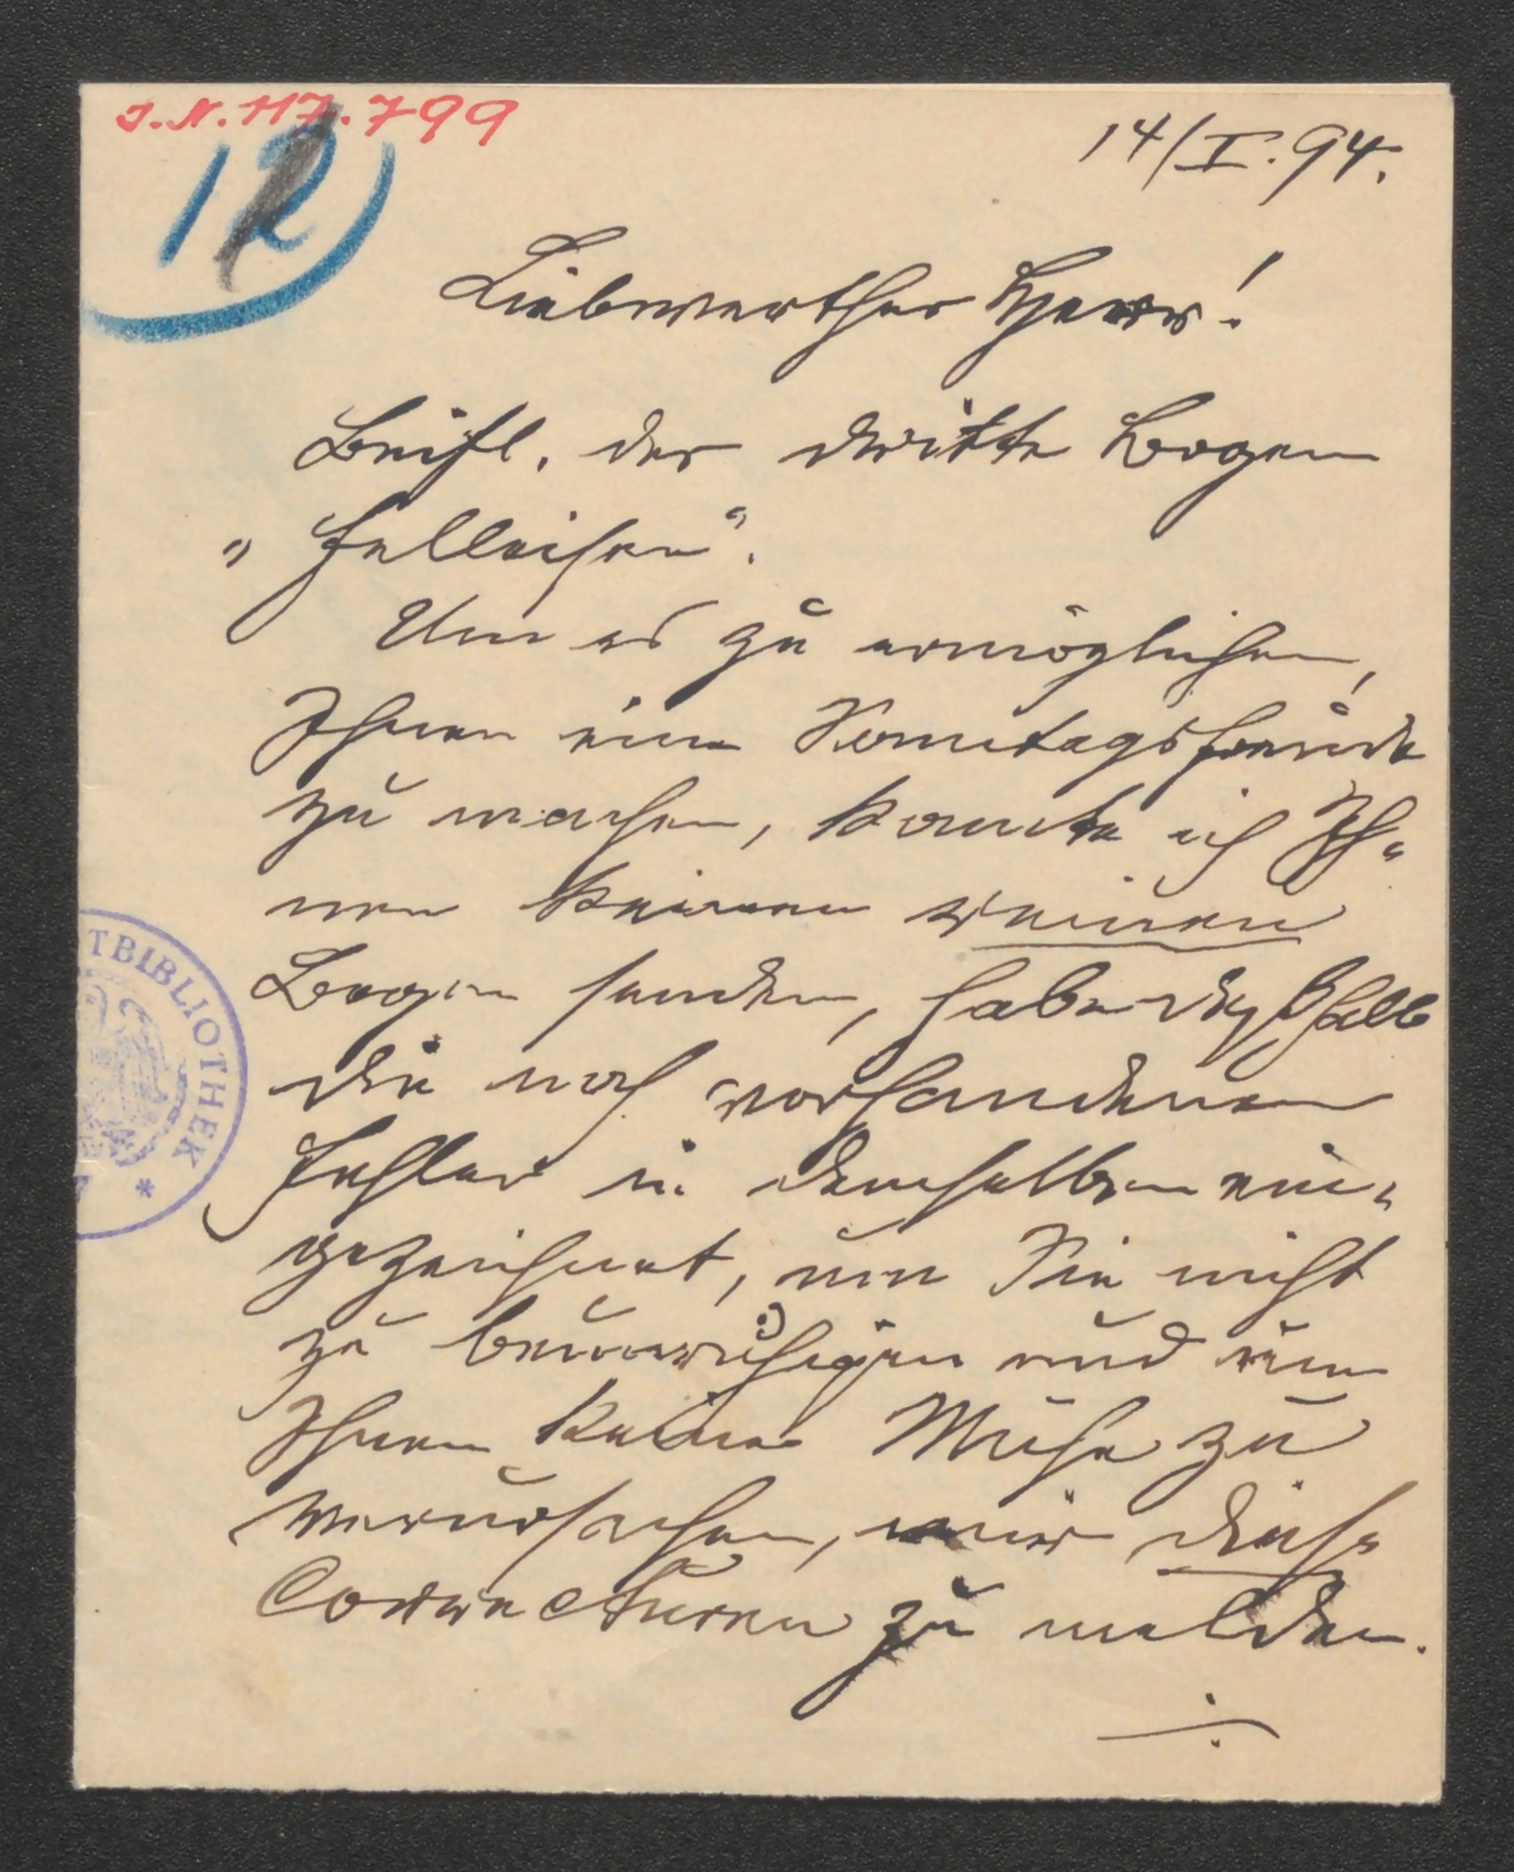 J.N. 117.799
12)
14/I. 94.
Liebwerther Herr!
Beifl. der dritte Bogen
„Felleisen“.
Um es zu ermöglichen,
Ihnen eine Sonntagsfreude
zu machen, konnte ich Ih-
nen keinen reinen
Bogen senden, habe deßhalb
die noch vorhandenen
Fehler in demselben ein-
gezeichnet, um Sie nicht
zu beunruhigen und um
Ihnen keine Mühe zu
verursachen, mir diese
Correcturen zu melden.
TBIBLIOTHEK *